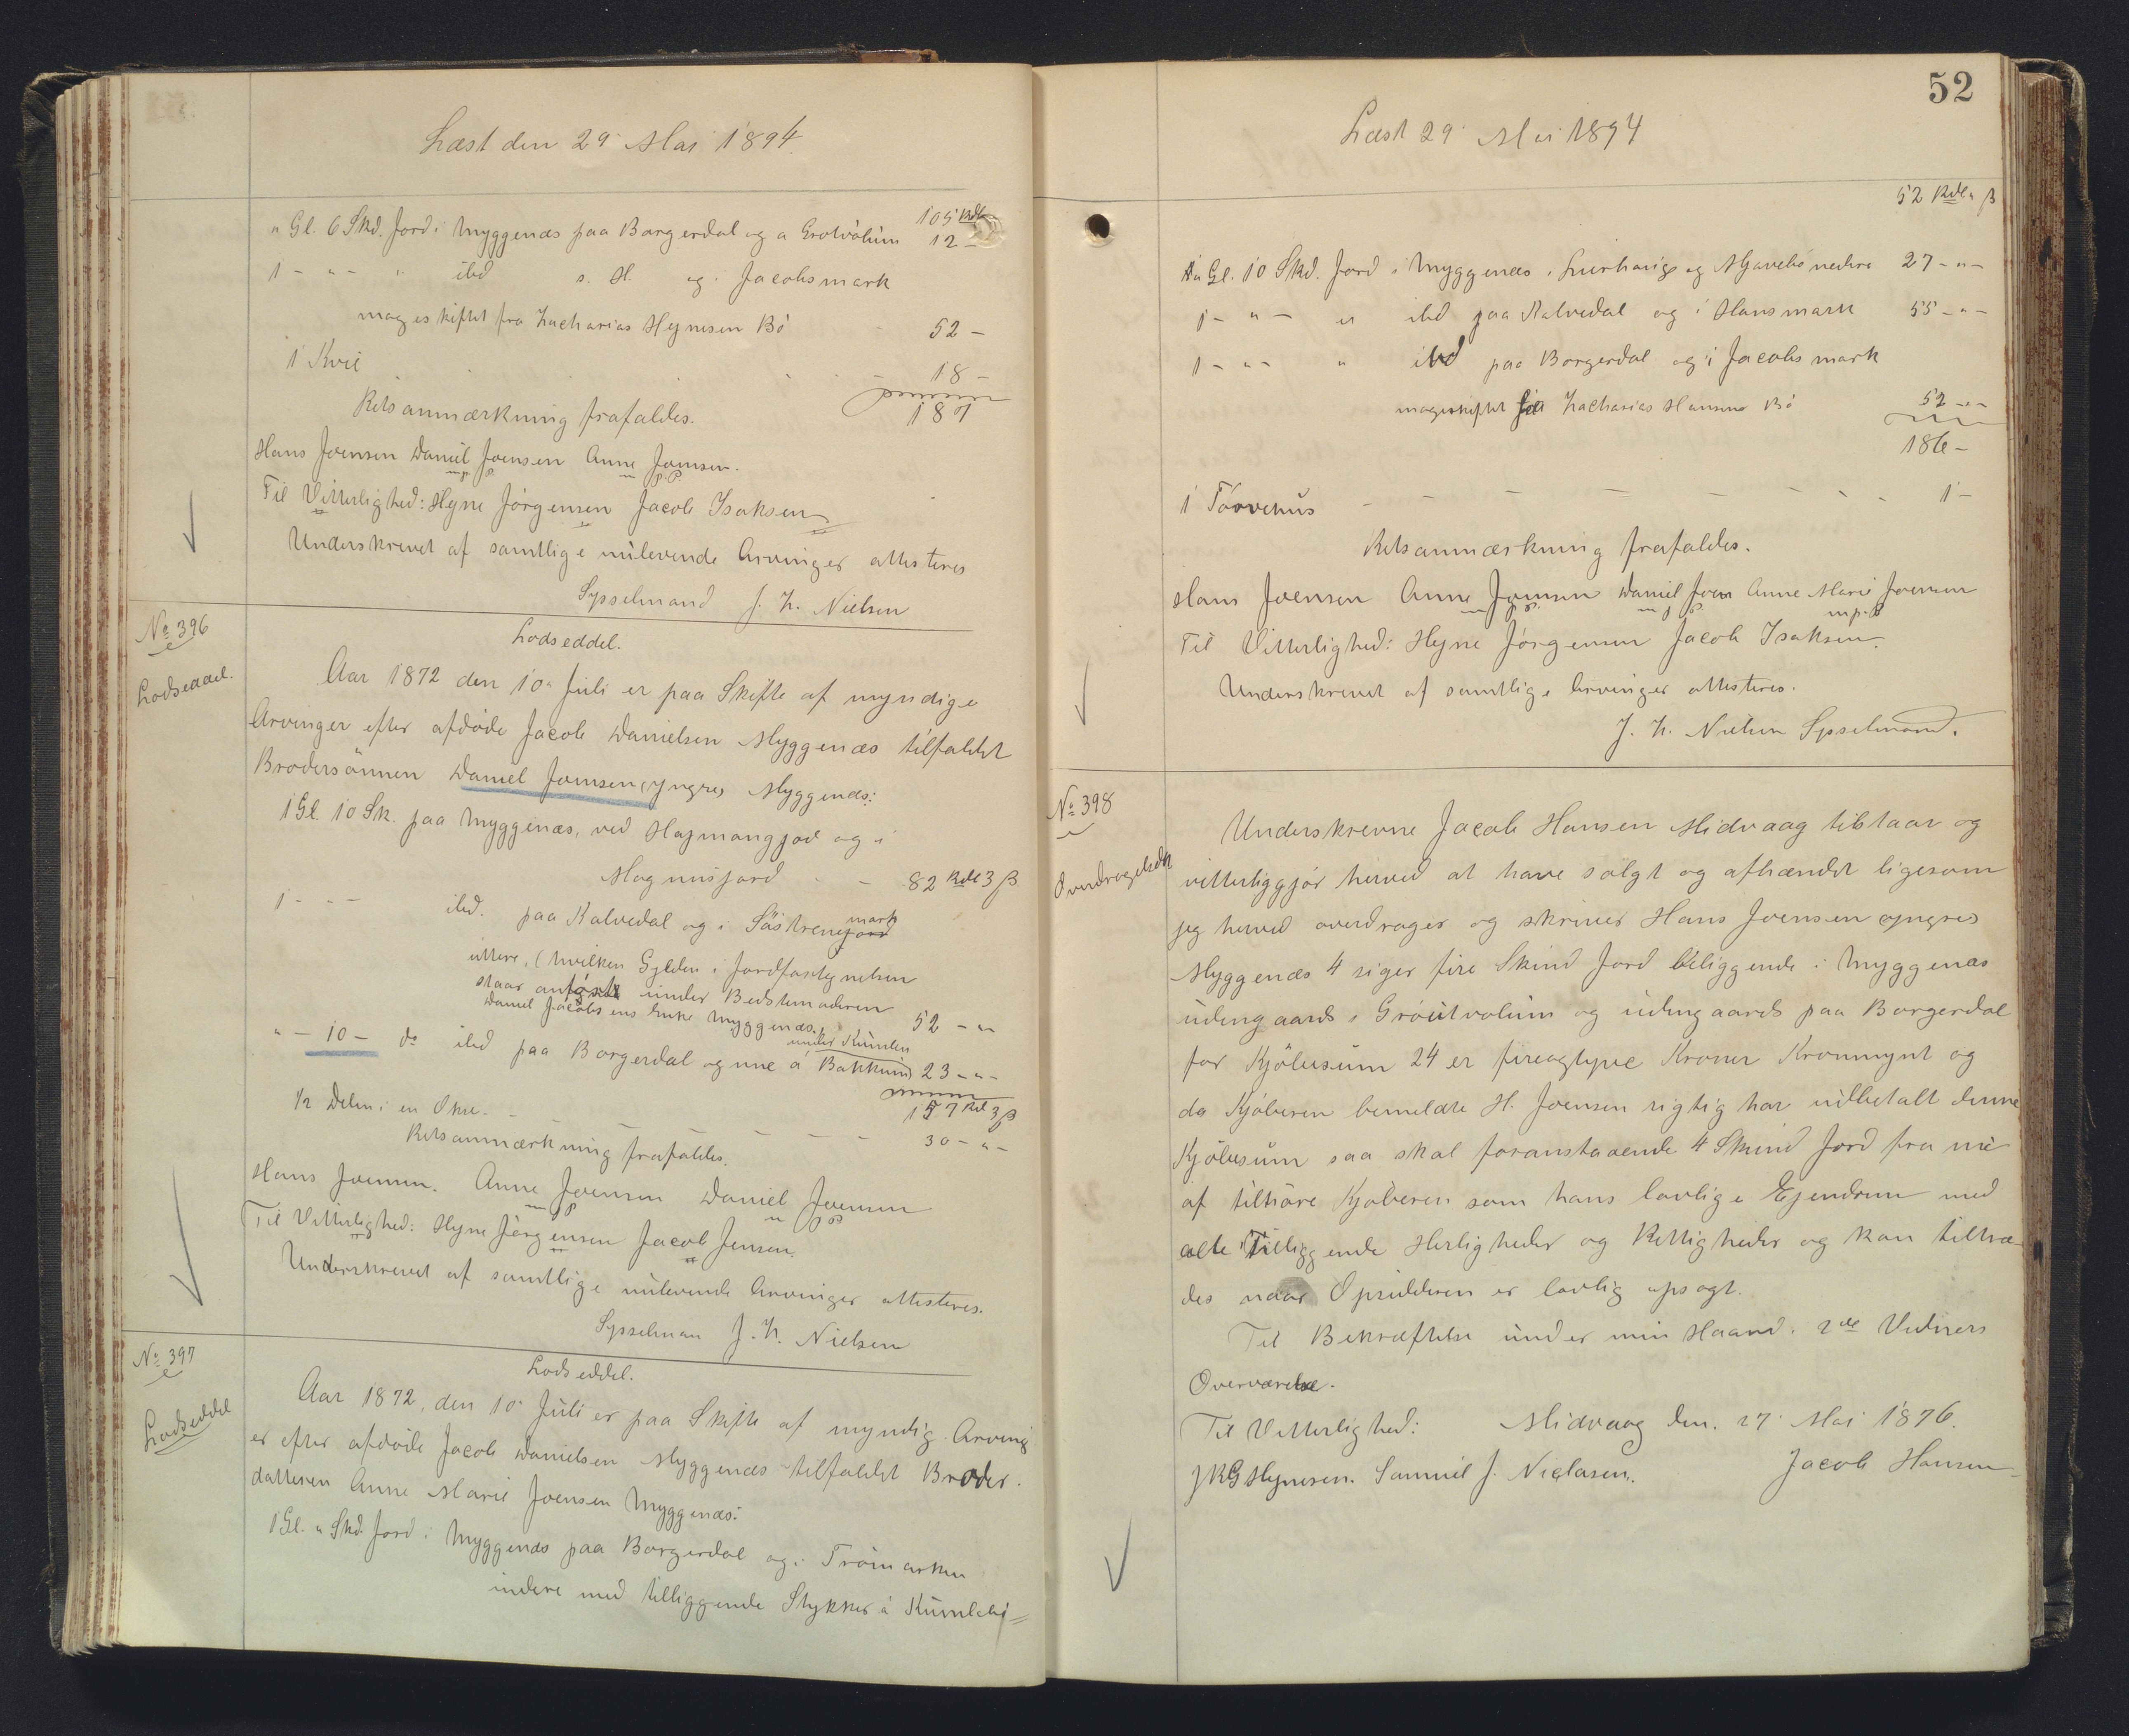 Læst den 29' Mai 1894.
105 Rdl
" Gl. 6 Skd. Jord i Myggenæs paa Borgerdal og a Grotvólum 12 -
1 - " - " ibd s. St. og i Jacobsmark
mageskiftet fra Zacharias Heynesen Bö 52 -
1 Kvie 18 -
187
Retsanmærkning frafaldes.
Hans Joensen Daniel Joensen Anne Joensen.
m.p.P. m.p.P.
Til Vitterlighed: Heyne Jörgensen Jacob Isaksen
Underskrevet af samtlige nulevende Arvinger attesteres
Sysselmand J. H. Nielsen
No 396
Lodseddel.
Lodseddel.
Aar 1872 den 10' Juli er paa Skifte af myndige
Arvinger efter afdöde Jacob Danielsen Myggenæs tilfaldet
Brodersönnen Daniel Joensen (yngre) Myggenæs:
1 Gl. 10 Sk. paa Myggenæs, ved Hajmangjov og i
Magnusjord - - 82 Rdl 3 ß
1 - - - ibd. paa Kalvedal og i Söstrene jord mark
uttere, (hvilken Gylden i Jordfortegnelsen
staar anförte under Bedstemoderen
Daniel Jacobsens Enke Myggenæs. 52 - "
under Kumlen
" - 10 - do ibd paa Borgerdal og une á Bakkum 23 - " -
157 Rdl 3 ß
1/2 Delen i en Oxe. - - - - - 30 - " -
Retsanmærkning frafaldes.
Hans Joensen. Anne Joensen Daniel Joensen
Til Vitterlighed: Heyne Jörgensen Jacob Jensen.
Underskrevet af samtlige nulevende Arvinger attesteres.
Sysselman J. H. Nielsen
No 397
Lodseddel
Lodseddel.
Aar 1872, den 10' Juli er paa Skifte af myndig. Arving
er efter afdöde Jacob Danielsen Myggenæs tilfaldet Broder.
datteren Anne Marie Joensen Myggenæs:
1 Gl. " Skd. Jord i Myggenæs paa Borgerdal og i Tröimarken
indere med tilliggende Stykker á Kumlebö =
52
Læst 29' Mai 1894
52 Rdl " ß
" Gl. 10 Skd. Jord i Myggenæs i Lurhavige og Mjavebö nedere 27 - " -
1 - " - " ibd paa Kalvedal og i Hansmark 55 - " -
1 - " - " ibd paa Borgerdal og i Jacobs mark
mageskiftet fra Zacharias Hansens Bö 52 - " -
186 -
1 Törvehus - - - - - - 1 -
Retsanmærkning frafaldes.
Hans Joensen Anne Joensen Daniel Joen Anne Marie Joensen
m.p.P. m.p.P. m.p.P
Til Vitterlighed: Heyne Jörgensen Jacob Isaksen.
Underskrevet af samtlige Arvinger attesteres.
J. H. Nielsen Sysselmand.
No 398
Overdragelsesdok
Underskrevne Jacob Hansen Midvaag tilstaar og
vitterliggjör herved at have solgt og afhændet ligesom
jeg herved overdrager og skriver Hans Joensen (yngre)
Myggenæs 4 siger fire Skind Jord beliggende i Myggenæs
udengaards i Gróutvolum og udengaards paa Borgerdal
for Kjöbesum 24 er fireogtyve Kroner Kronmynt og
da Kjöberen bemeldte H. Joensen rigtig har udbetalt denne
Kjöbesum saa skal foranstaaende 4 Skind Jord fra nu
af tilhöre Kjöberen som hans lovlige Ejendom med
alle Tilliggende Herligheder og Rettigheder og kan tiltræ-
des naar Opsidderen er lovlig opsagt.
Til Bekræftelse under min Haand i 2de Vidners
Overværelse.
Til Vitterlighed: Midvaag den. 27' Mai 1876.
JKG Heynesen. Samuel J. Niclasen. Jacob Hansen